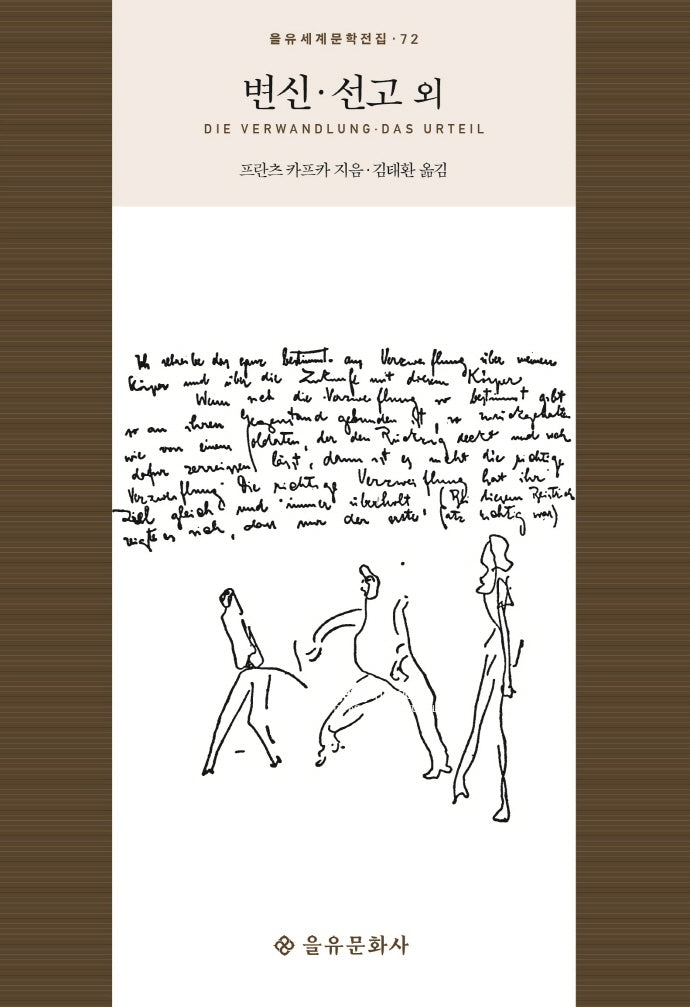 을유세계문학전집·72
변신·선고 외
DIE VERWANDLUNG·DAS URTEIL
프란츠 카프카 지음·김태환 옮김
Ich schreibe das ganz bestimmt aus Verzweiflung über meinen
Körper und über die Zukunft mit diesem Körper
Wenn sich die Verzweiflung so bestimmt gibt
so an ihren Gegenstand gebunden ist, so zurückgehalten
wie von einem Soldaten, der den Rückzug deckt und sich
dafür zerreissen lässt, dann ist es nicht die richtige
Verzweiflung Die richtige Verzweiflung hat ihr
Ziel gleich und immer überholt, (Bei diesem Beistrich
zeigte es sich, dass nur der erste Satz richtig war)
을유문화사